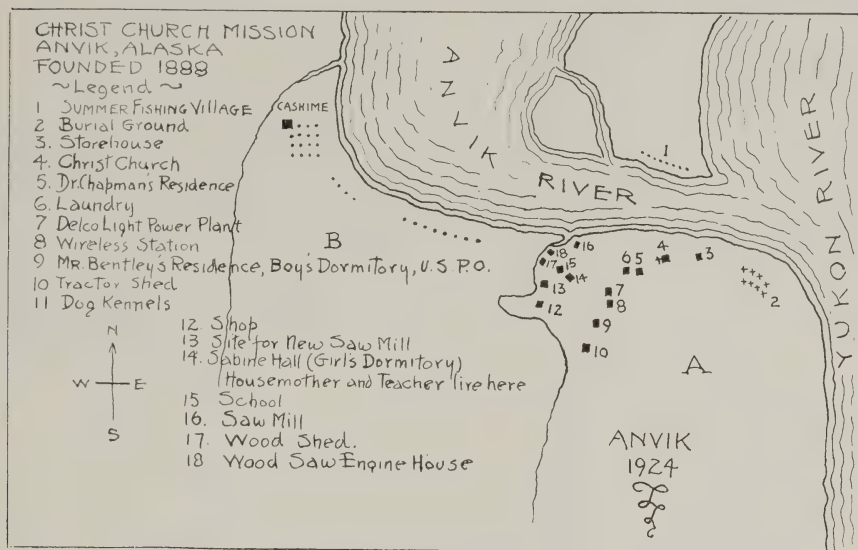 CHRIST CHURCH MISSION
ANVIK, ALASKA
FOUNDED 1888
~Legend~
1 SUMMER FISHING VILLAGE
2 Burial Ground
3. Storehouse
4. Christ Church
5. Dr. Chapman's Residence
6. Laundry
7 Delco Light Power Plant
8 Wireless Station
9 MR. Bentley's Residence, Boy's Dormitory, U.S.P.O.
10 Tractor Shed
11 Dog Kennels
12. Shop
13 Site for New Saw Mill
14. Sabine Hall (Girl's Dormitory)
Housemother and Teacher live here
15 School
16. Saw Mill
17. Wood Shed.
18 Wood Saw Engine House
N
W E
S
CASHIME
ANVIK
RIVER
YUKON RIVER
1
B
18
16
17
15
14
13
12
6 5
4
3
2
7
8
9
10
A
ANVIK
1924